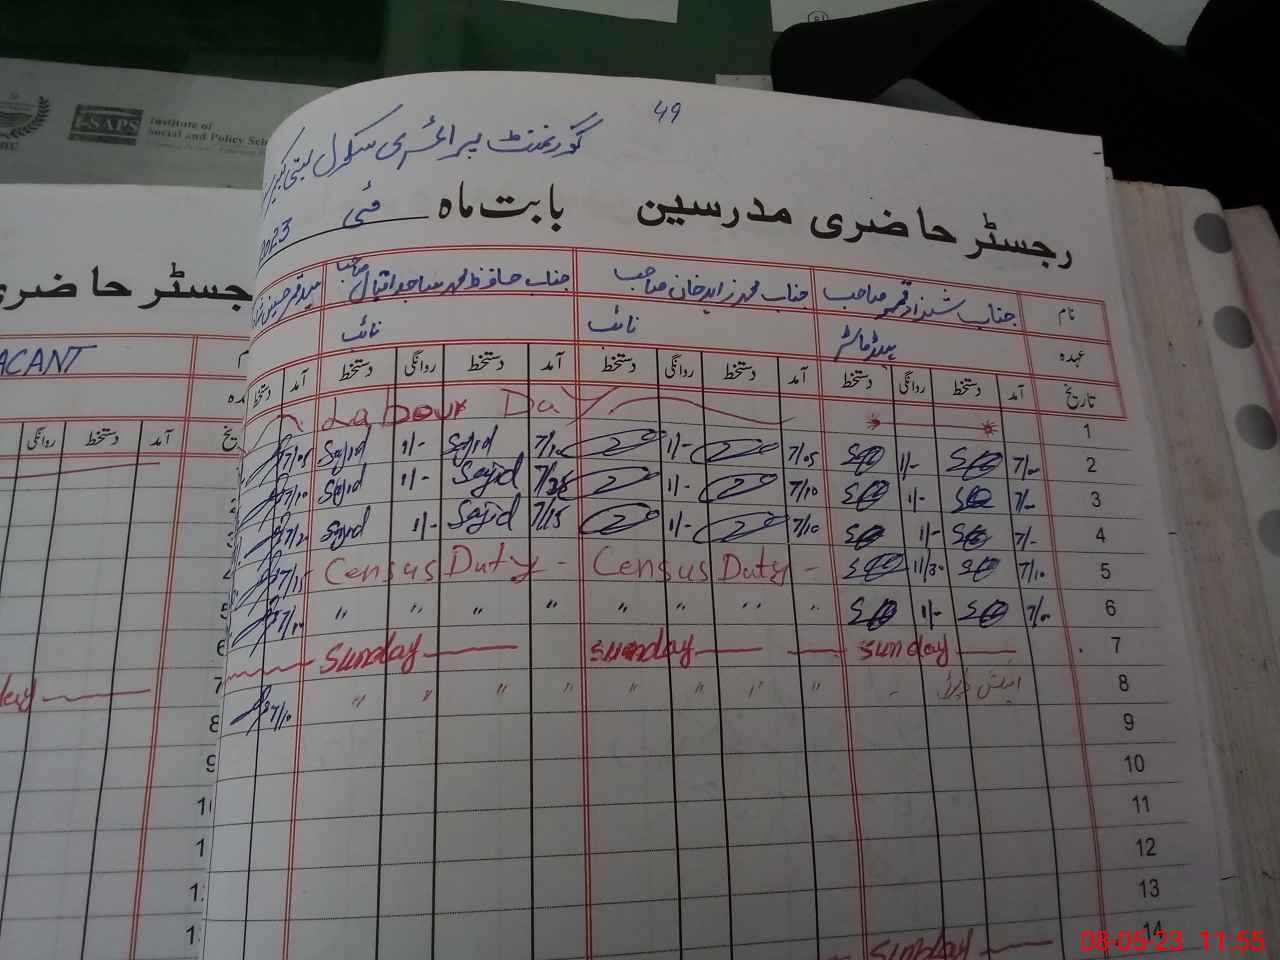 49
گورنمنٹ پرائمری سکول بستی
رجسٹر حاضری مدرسین بابت ماہ مئی 2023
نام جناب شہزاد قمر صاحب جناب محمد زاہد خان صاحب جناب حافظ محمد ساجد اقبال صاحب
عہدہ ہیڈ ماسٹر نائب نائب
تاریخ آمد دستخط روانگی دستخط آمد دستخط روانگی دستخط آمد دستخط روانگی دستخط آمد دستخط
1 Labour Day
2 7/- 1/- 7/05 1/- 7/10 Sajid 1/- Sajid 7/05
3 7/- 1/- 7/10 1/- Sajid 1/- Sajid 7/10
4 7/- 1/- 7/10 1/- 7/15 Sajid 1/- Sajid
5 7/10 11/30 Census Duty - Census Duty - 7/15
6 7/- 1/- " " " " " " " "
7 sunday sunday sunday
8 " " " " " " " " 7/10
9
10
11
12
13
14 sunday
رجسٹر حاضری
ACANT
روانگی دستخط آمد
Institute of
Social and Policy
08-05-23 11:55